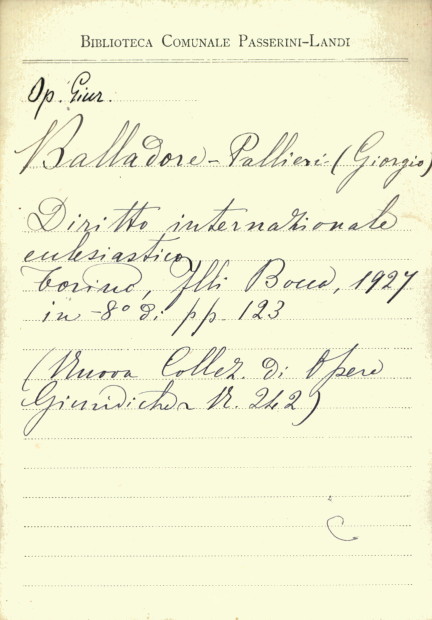 BIBLIOTECA COMUNALE PASSERINI-LANDI
Op. Giur.
Balladore-Pallieri (Giorgio)
Diritto internazionale
eclesiastico
Torino, Flli Bocca, 1927
in-8° di pp. 123
(Nuova Collez. di Opere
Giuridiche N. 242)